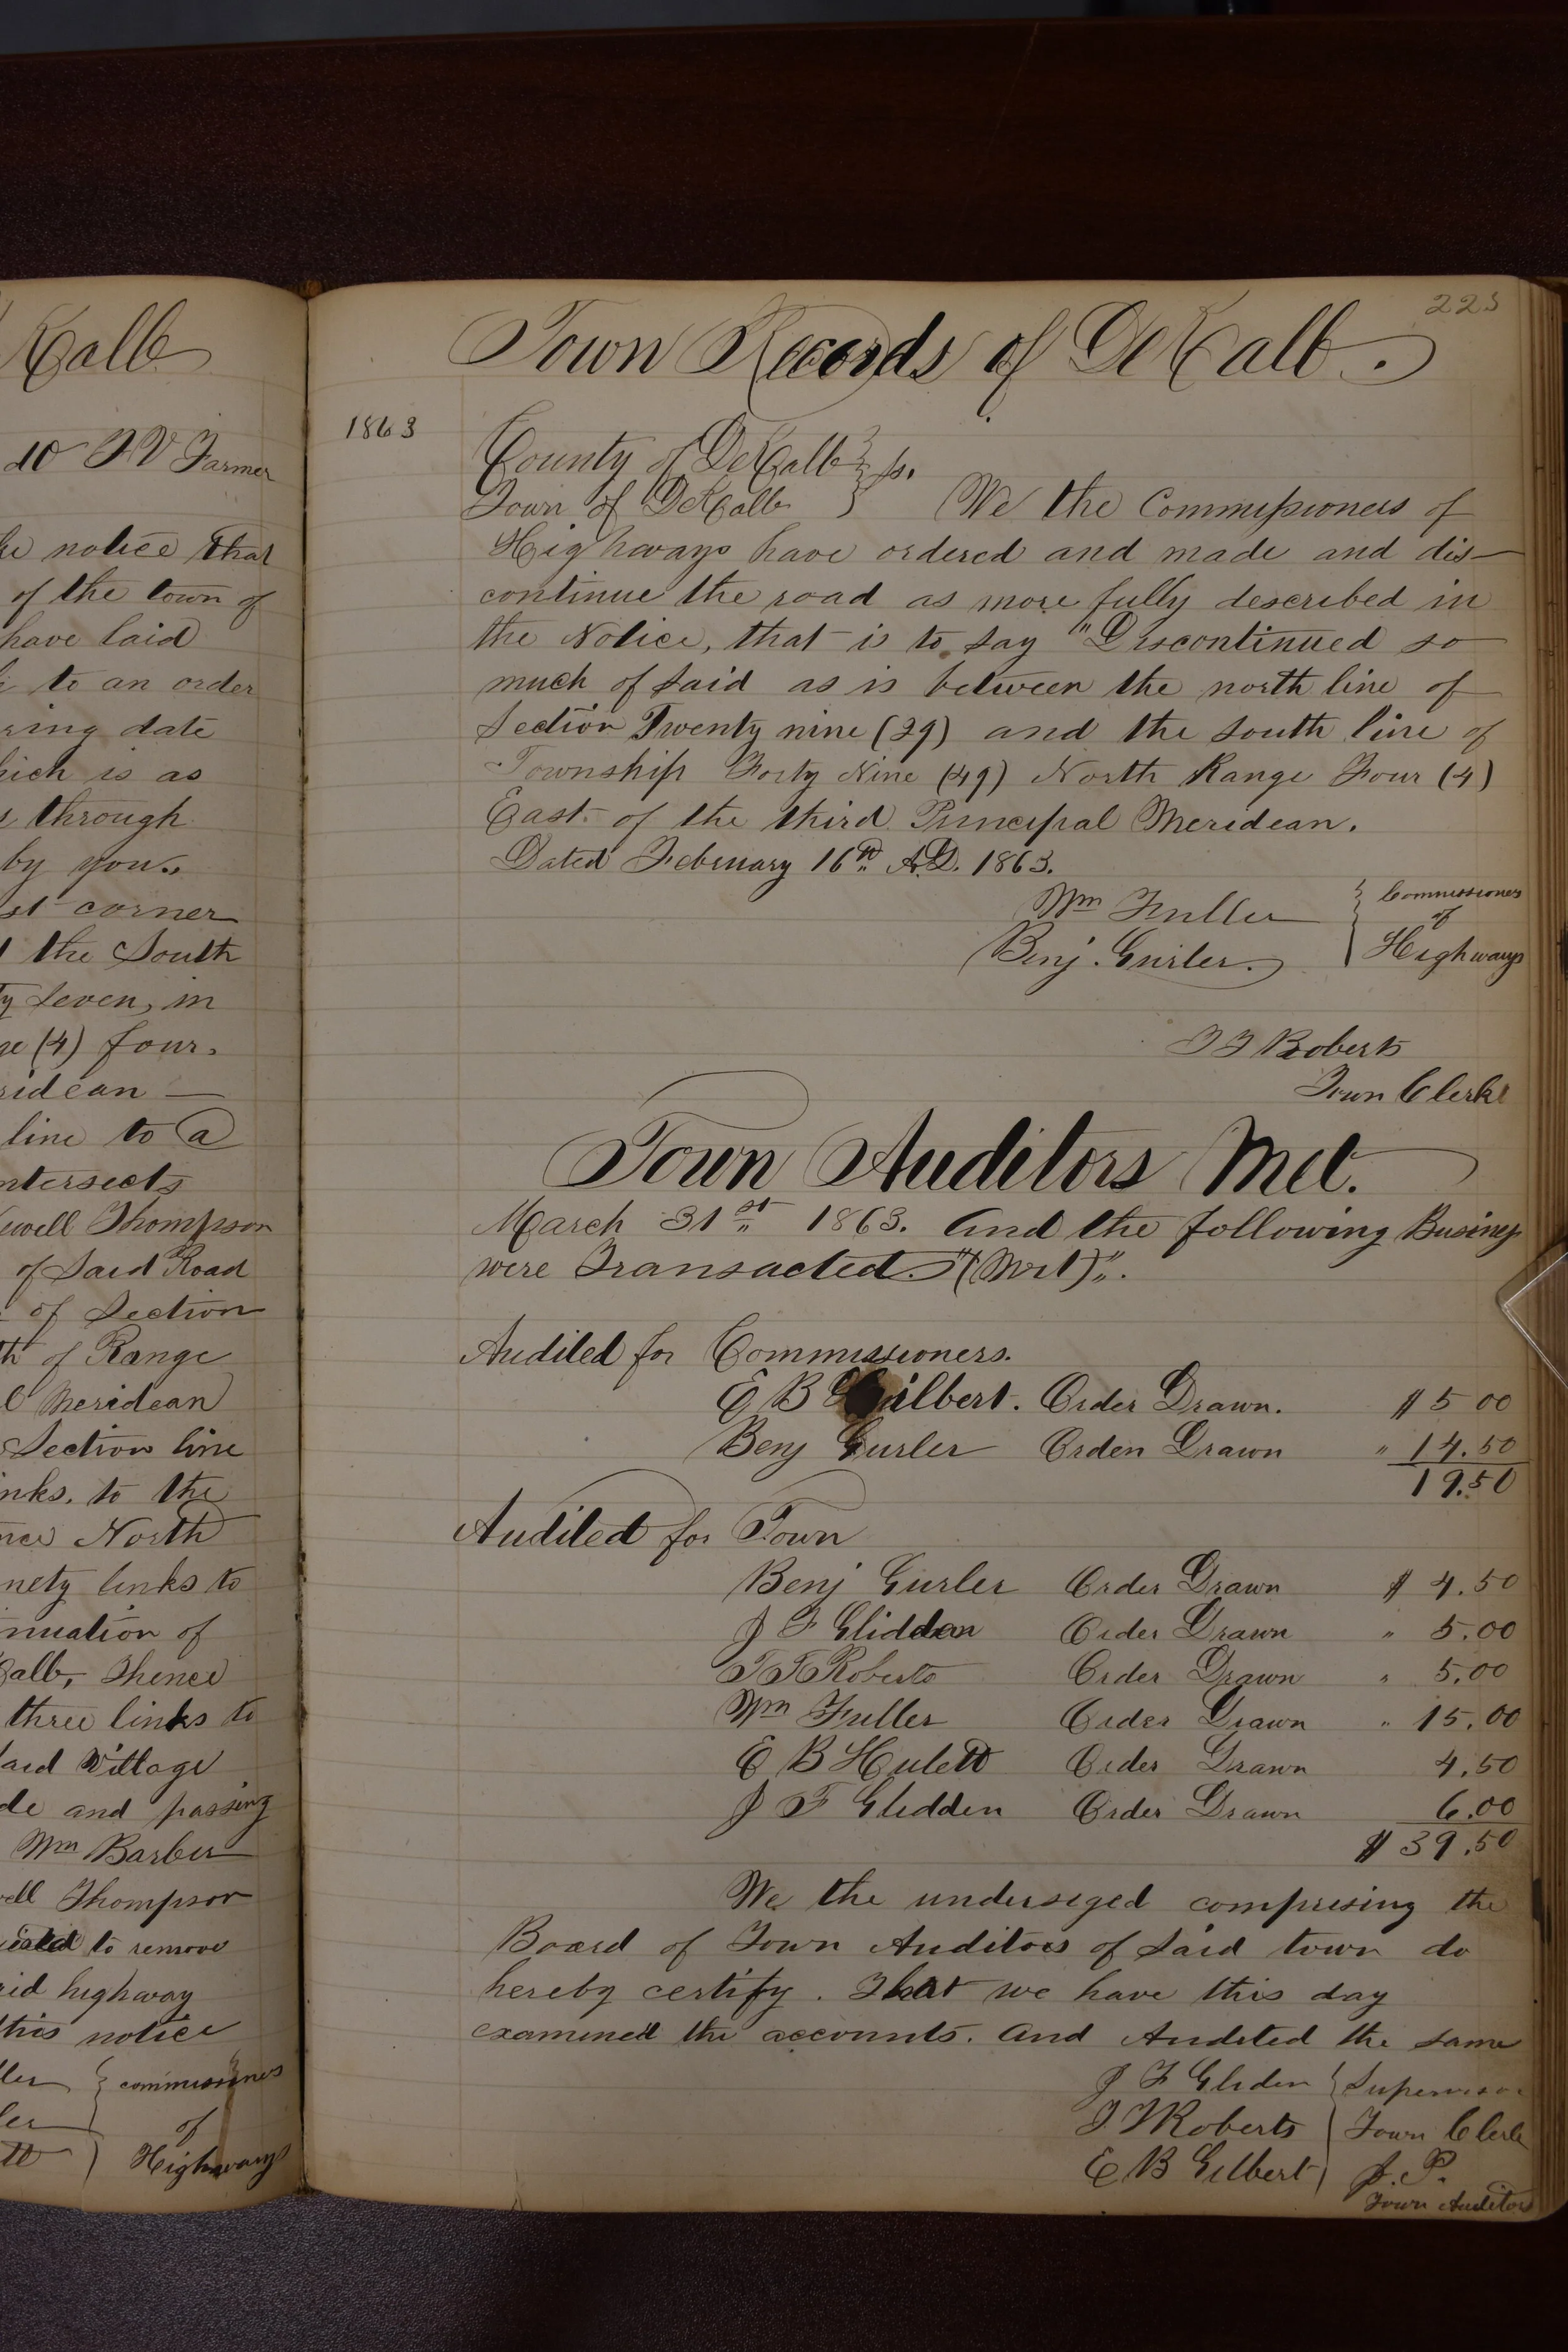 Kalb
do F V Farmer
notice that
of the town of
have laid
to an order
ring date
hich is as
through
by you.
st corner
the South
ty Seven, in
ge (4) four.
ridean —
line to a
ntersects
ewell Thompson
of Said Road
of Section
th of Range
l Meridean
Section line
inks. to the
nce North
nety links to
nuation of
Kalb, Thence
three links to
said Village
de and passing
Wm Barber
ell Thompson
to remove
aid highway
this notice
ller } commissioners
ler of
tt ) Highways
223
Town Records of DeKalb.
1863
County of DeKalb } ss.
Town of DeKalb } We the Commissioners of
Highways have ordered and made and dis-
continue the road as more fully described in
the Notice, that is to say "Discontinued so
much of said as is between the north line of
Section Twenty nine (29) and the south line of
Township Forty Nine (49) North Range Four (4)
East of the third Principal Meridean.
Dated February 16th A.D. 1863.
Wm Fuller } Commissioners
of
Benj. Gurler. Highways
T F Roberts
Town Clerk
Town Auditors Met.
March 31st 1863. And the following Business
were Transacted. "(Wit)".
Audited for Commissioners.
E B Gilbert. Order Drawn. $ 5 00
Benj Gurler Orden Drawn " 14.50
19.50
Audited for Town
Benj Gurler Order Drawn $ 4.50
J F Glidden Order Drawn " 5.00
T F Roberts Order Drawn " 5.00
Wm Fuller Order Drawn " 15.00
E B Hulett Order Drawn 4.50
J F Glidden Order Drawn 6.00
$ 39.50
We the underseged compresing the
Board of Town Auditors of Said town do
hereby certify. That we have this day
examined the accounts. And Audited the same
J F Gliden } Supervisor
T F Roberts Town Clerk
E B Gilbert ) J. P.
Town Auditors